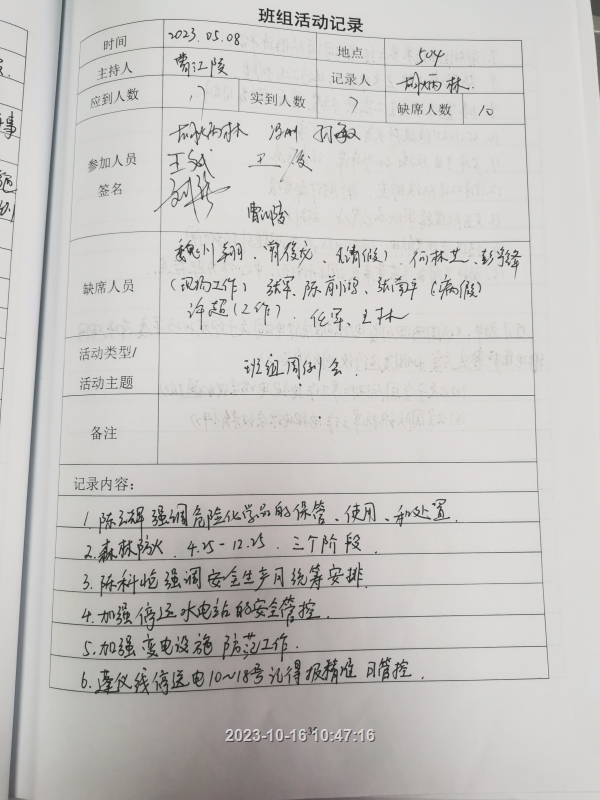 班组活动记录
时间 2023.05.08 地点 504
主持人 曹江陵 记录人 胡炳林
应到人数 17 实到人数 7 缺席人数 10
胡炳林
参加人员 王斌
签名
曹江陵
魏川翔、曾俊龙、(请假)、何林芝、彭
缺席人员 (现场工作) 张军、陈前鸿、张南平(病假)
许超(工作)、任军、王林
活动类型/
活动主题 班组周例会.
备注
记录内容:
1.陈 强调危险化学品的保管、使用、和处置.
2.森林防火、4.25-12.25、三个阶段.
3.陈科 强调安全生产月统筹安排.
4.加强停运水电站的安全管控.
5.加强变电设施防范工作.
6.蓬仪线停送电10~18号记得报精准日管控.
2023-10-16 10:47:16